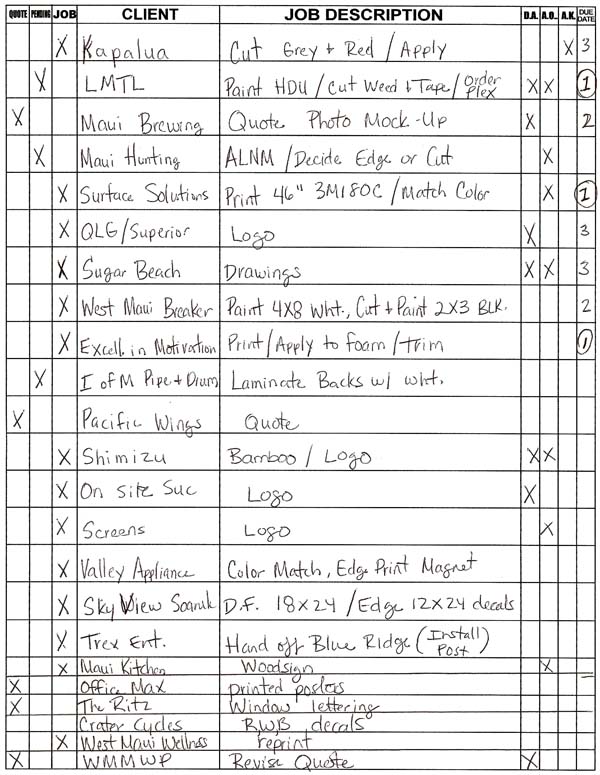 QUOTE PENDING JOB CLIENT JOB DESCRIPTION D.A. A.O. A.K. DUE DATE
X Kapalua Cut Grey + Red / Apply X 3
X LMTL Paint HDU / Cut Weed + Tape / Order Plex X X 1
X Maui Brewing Quote Photo Mock-Up X 2
X Maui Hunting ALNM / Decide Edge or Cut X
X Surface Solutions Print 46" 3M180C / Match Color X 1
X QLG/Superior Logo X 3
X Sugar Beach Drawings X X 3
X West Maui Breaker Paint 4X8 Wht., Cut + Paint 2X3 BLK. 2
X Excell. in Motivation Print / Apply to foam / Trim 1
X I of M Pipe + Drum Laminate Backs w/ wht.
X Pacific Wings Quote
X Shimizu Bamboo / Logo X X
X On Site Suc Logo X
X Screens Logo X
X Valley Appliance Color Match, Edge Print Magnet
X Sky View D.F. 18X24 / Edge 12X24 decals
X Trex Ent. Hand off Blue Ridge (Install Post)
X Maui Kitchen Woodsign X
X Office Max printed posters
X The Ritz Window lettering
Crater Cycles RWB decals
X West Maui Wellness reprint
X WMMWP Revise Quote X